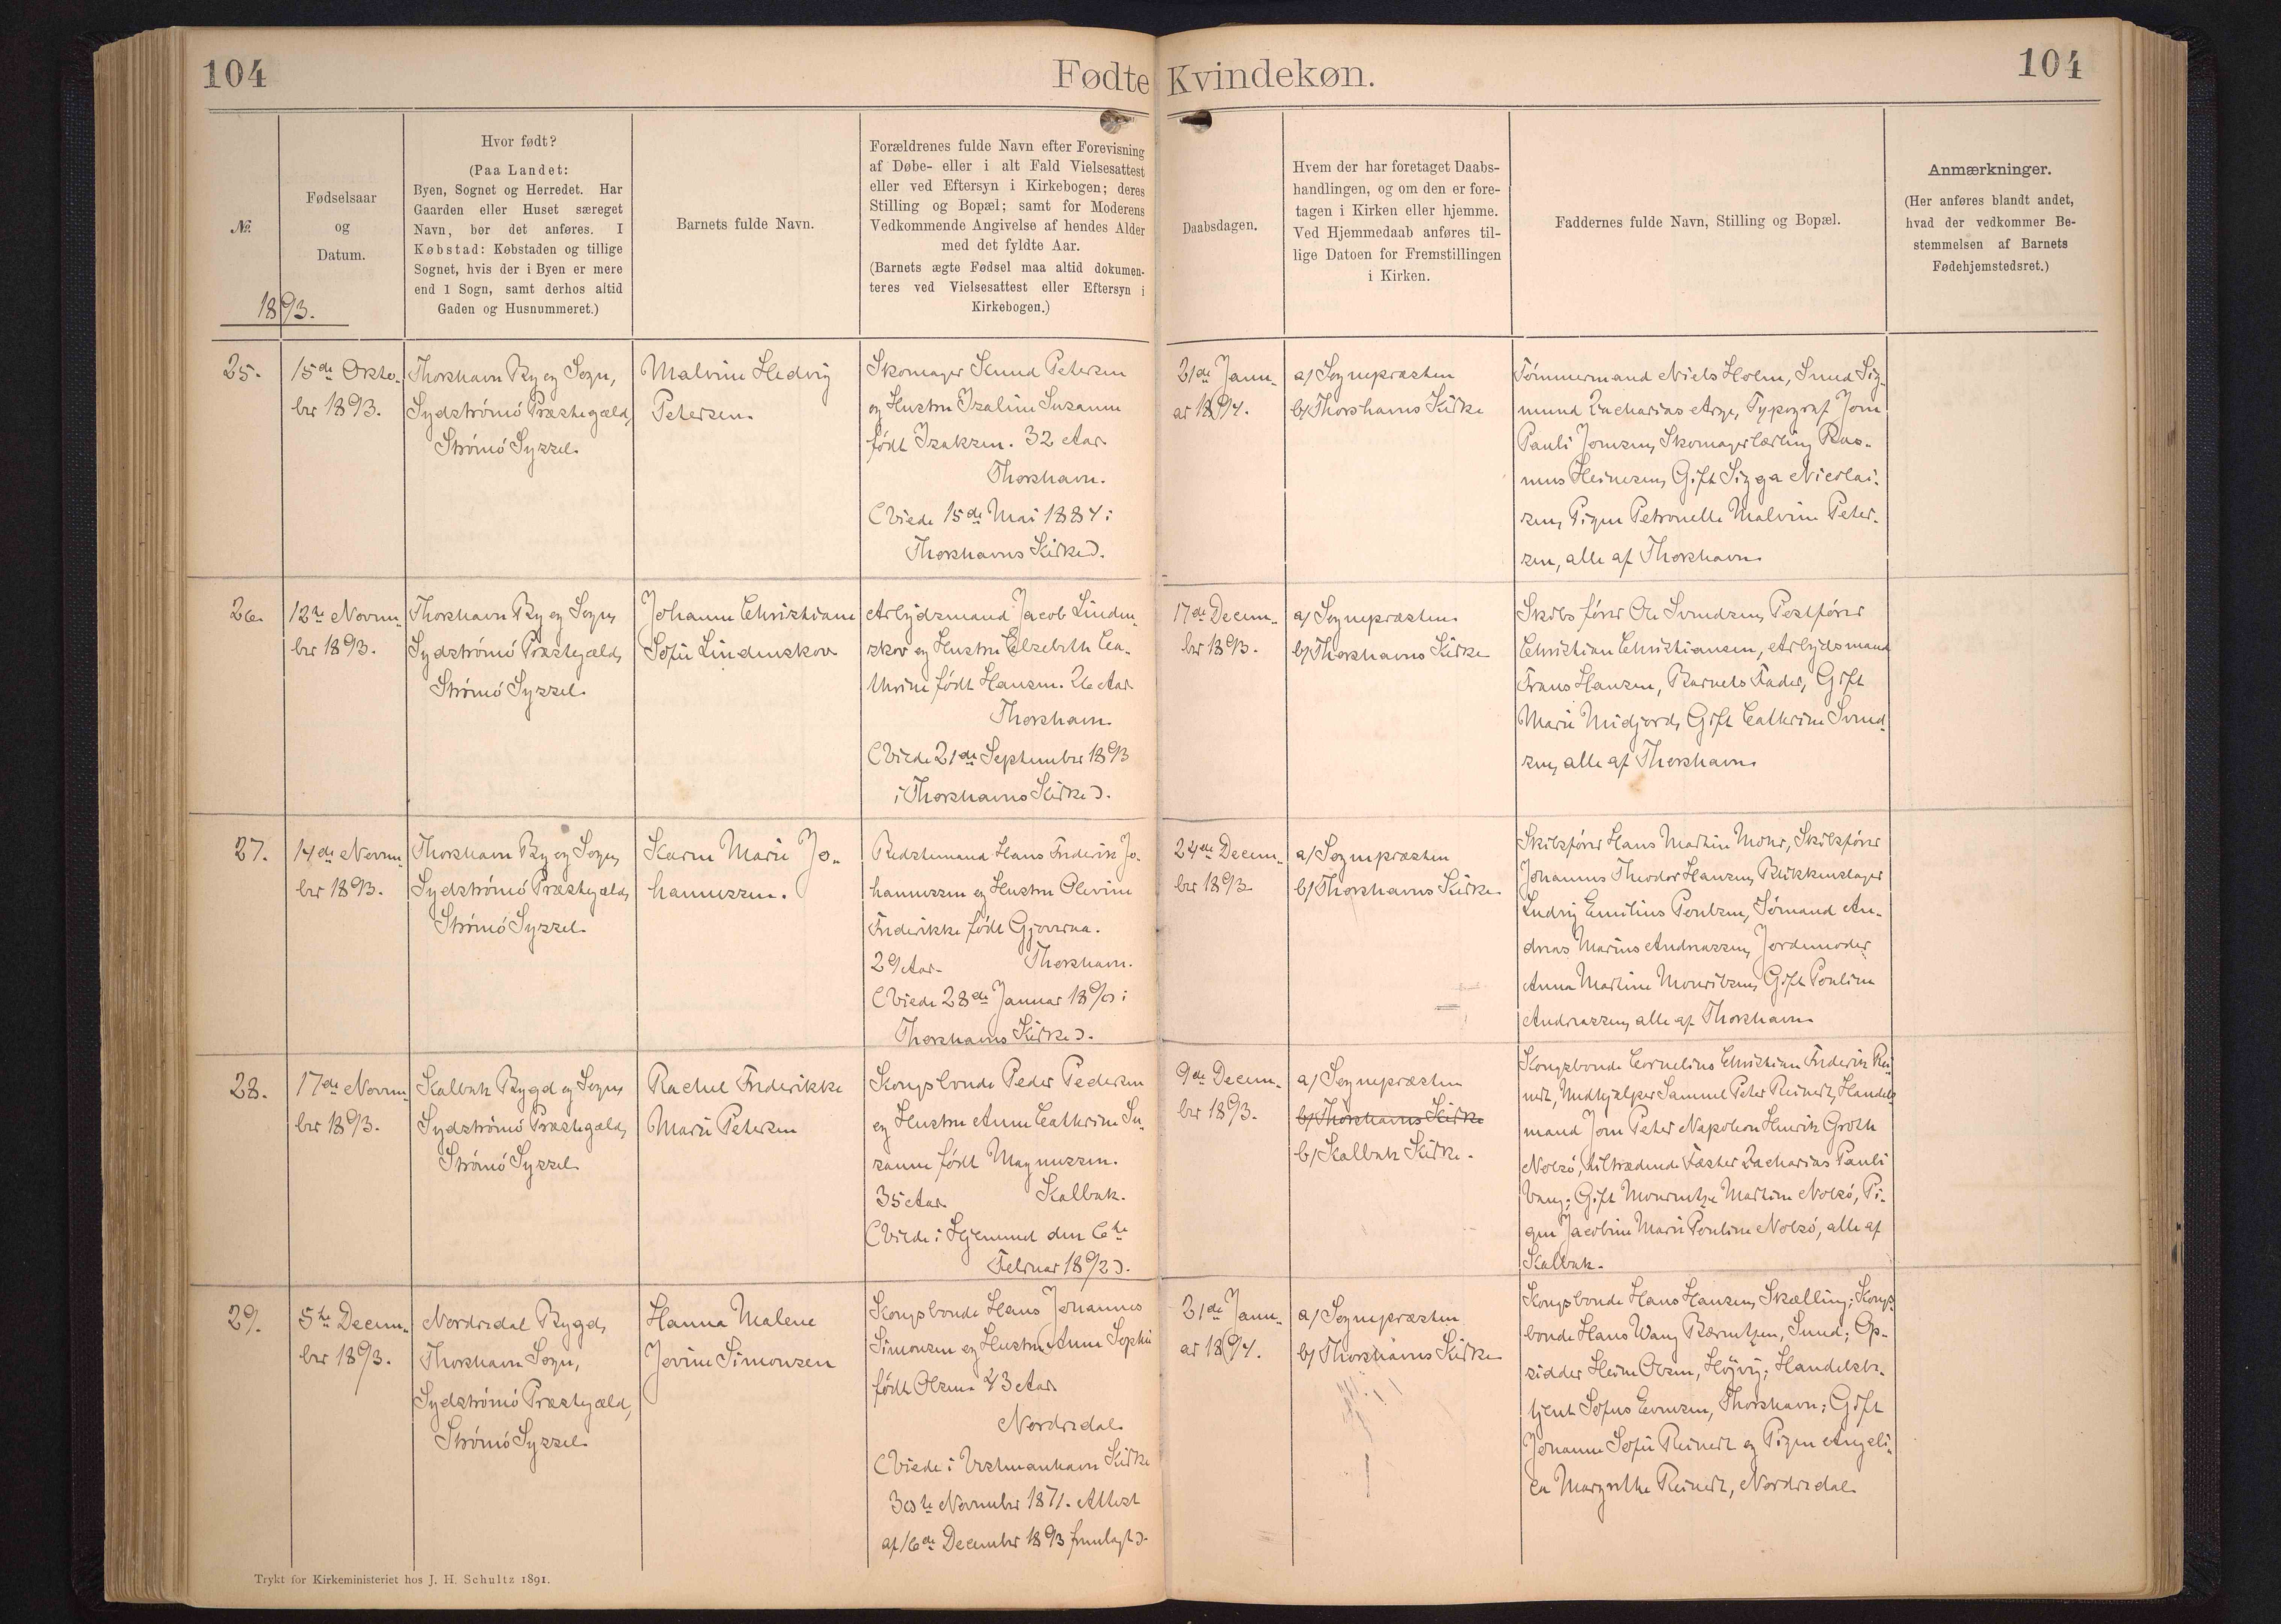 104
Fødte Kvindekøn.
104
№
Fødselsaar
og
Datum.
Hvor født?
(Paa Landet:
Byen, Sognet og Herredet. Har
Gaarden eller Huset særeget
Navn, bør det anføres. I
Købstad: Købstaden og tillige
Sognet, hvis der i Byen er mere
end 1 Sogn, samt derhos altid
Gaden og Husnummeret.)
Barnets fulde Navn.
Forældrenes fulde Navn efter Forevisning
af Døbe- eller i alt Fald Vielsesattest
eller ved Eftersyn i Kirkebogen; deres
Stilling og Bopæl; samt for Moderens
Vedkommende Angivelse af hendes Alder
med det fyldte Aar.
(Barnets ægte Fødsel maa altid dokumen-
teres ved Vielsesattest eller Eftersyn i
Kirkebogen.)
Daabsdagen.
Hvem der har foretaget Daabs-
handlingen, og om den er fore-
tagen i Kirken eller hjemme.
Ved Hjemmedaab anføres til-
lige Datoen for Fremstillingen
i Kirken.
Faddernes fulde Navn, Stilling og Bopæl.
Anmærkninger.
(Her anføres blandt andet,
hvad der vedkommer Be-
stemmelsen af Barnets
Fødehjemstedsret.)
1893.
25.
15de Okto-
ber 1893.
Thorshavn By og Sogn,
Sydströmö Præstegæld,
Strömö Syssel.
Malvine Hedvig
Petersen.
Skomager Knud Petersen
og Hustru Isaline Susanne
født Isaksen. 32 Aar.
Thorshavn.
(Viede 15de Mai 1884 i
Thorshavns Kirke).
21de Janu-
ar 1894.
a) Sognepræsten
b) Thorshavns Kirke
Tömmermand Niels Holm, Smed Sig-
mund Zacharias Arge, Typograf Jorn
Pauli Joensen, Skomagerlærling Ras-
mus Heinesen, Gift Sigga Nicolai-
sen, Pigen Petronelle Malvine Peter-
sen, alle af Thorshavn.
26.
12te Novem-
ber 1893.
Thorshavn By og Sogn,
Sydströmö Præstegæld,
Strömö Syssel.
Johanne Christiane
Sofie Lindenskov
Arbejdsmand Jacob Linden-
skov og Hustru Elsebeth Ca-
thrine født Hansen. 26 Aar.
Thorshavn.
(Viede 21de September 1893
i Thorshavns Kirke).
17de Decem-
ber 1893.
a) Sognepræsten
b) Thorshavns Kirke
Skibsförer Ole Svendsen, Postförer
Christian Christiansen, Arbejdsmand
Frans Hansen, Barnets Fader, Gift
Marie Midjord, Gift Cathrine Svend-
sen, alle af Thorshavn.
27.
14de Novem-
ber 1893.
Thorshavn By og Sogn,
Sydströmö Præstegæld,
Strömö Syssel.
Karen Marie Jo-
hannessen.
Bedstemand Hans Frederik Jo-
hannessen og Hustru Olevine
Frederikke født Gjoveraa.
29 Aar. Thorshavn.
(Viede 28de Januar i
Thorshavns Kirke).
24de Decem-
ber 1893
a) Sognepræsten
b) Thorshavns Kirke
Skibsförer Hans Martin Mohr, Skibsförer
Johannes Theodor Hansen, Blikkenslager
Ludvig Emilius Poulsen, Sömand An-
dreas Marius Andreassen, Jordemoder
Anna Martine Mouritsen, Gift Pouline
Andreassen, alle af Thorshavn.
28.
17de Novem-
ber 1893.
Kalbak Bygd og Sogn,
Sydströmö Præstegæld,
Strömö Syssel.
Rachel Frederikke
Marie Petersen
Kongsbonde Peder Pedersen
og Hustru Anne Cathrine Su-
sanne født Magnussen.
35 Aar. Kalbak.
(Viede i Hjemmet den 6te
Februar 1892).
9de Decem-
ber 1893.
a) Sognepræsten
b) Thorshavns Kirke
b) Kalbak Kirke.
Kongsbonde Cornelius Christian Frederik Rei-
nert, Medhjælper Samuel Peter Reinert, Handels-
mand Jorn Peter Napoleon Henrik Groth
Nolsö, tiltrædende Fæster Zacharias Pauli
Vang; Gift Mourentze Martine Nolsö, Pi-
gen Jacobine Marie Pouline Nolsö, alle af
Kalbak.
29.
5te Decem-
ber 1893.
Nordredal Bygd,
Thorshavn Sogn,
Sydströmö Præstegæld,
Strömö Syssel.
Hanna Malene
Jovine Simonsen
Kongsbonde Hans Johannes
Simonsen og Hustru Anne Sophie
født Olsen. 43 Aar.
Nordredal.
(Viede i Vestmanhavn Kirke
30te November 1871. Attest
af 16de December 1893 fremlagt).
21de Janu-
ar 1894.
a) Sognepræsten
b) Thorshavns Kirke
Kongsbonde Hans Hansen, Skælling; Kongs-
bonde Hans Wang Berentsen, Sund; Op-
sidder Heine Olsen, Höjvig; Handelsbe-
tjent Sofus Evensen, Thorshavn; Gift
Johanne Sofie Reinert og Pigen Angeli-
ca Margrethe Reinert, Nordredal.
Trykt for Kirkeministeriet hos J. H. Schultz 1891.